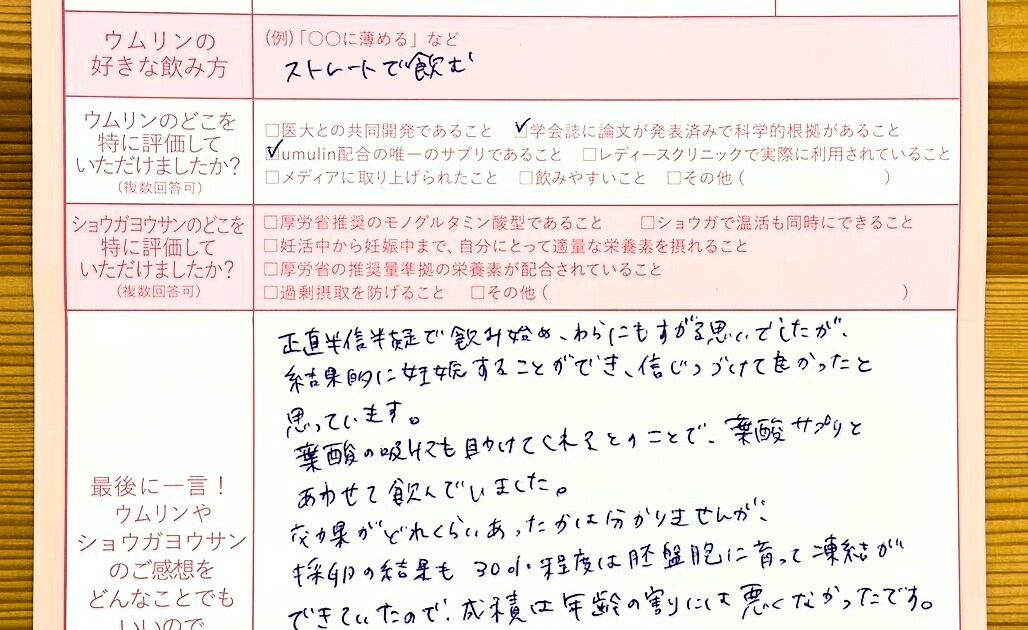 ウムリンの
好きな飲み方
(例)「〇〇に薄める」など
ストレートで飲む
ウムリンのどこを
特に評価して
いただけましたか?
(複数回答可)
□医大との共同開発であること ☑学会誌に論文が発表済みで科学的根拠があること
☑umulin配合の唯一のサプリであること □レディースクリニックで実際に利用されていること
□メディアに取り上げられたこと □飲みやすいこと □その他( )
ショウガヨウサンのどこを
特に評価して
いただけましたか?
(複数回答可)
□厚労省推奨のモノグルタミン酸型であること □ショウガで温活も同時にできること
□妊活中から妊娠中まで、自分にとって適量な栄養素を摂れること
□厚労省の推奨量準拠の栄養素が配合されていること
□過剰摂取を防げること □その他( )
最後に一言!
ウムリンや
ショウガヨウサン
のご感想を
どんなことでも
いいので
正直半信半疑で飲み始め、わらにもすがる思いでしたが、
結果的に妊娠することができ、信じつづけて良かったと
思っています。
葉酸の吸収も助けてくれるとのことで、葉酸サプリと
あわせて飲んでいました。
効果がどれくらいあったかは分かりませんが、
採卵の結果も30%程度は胚盤胞に育って凍結が
できていたので、成績は年齢の割りには悪くなかったです。